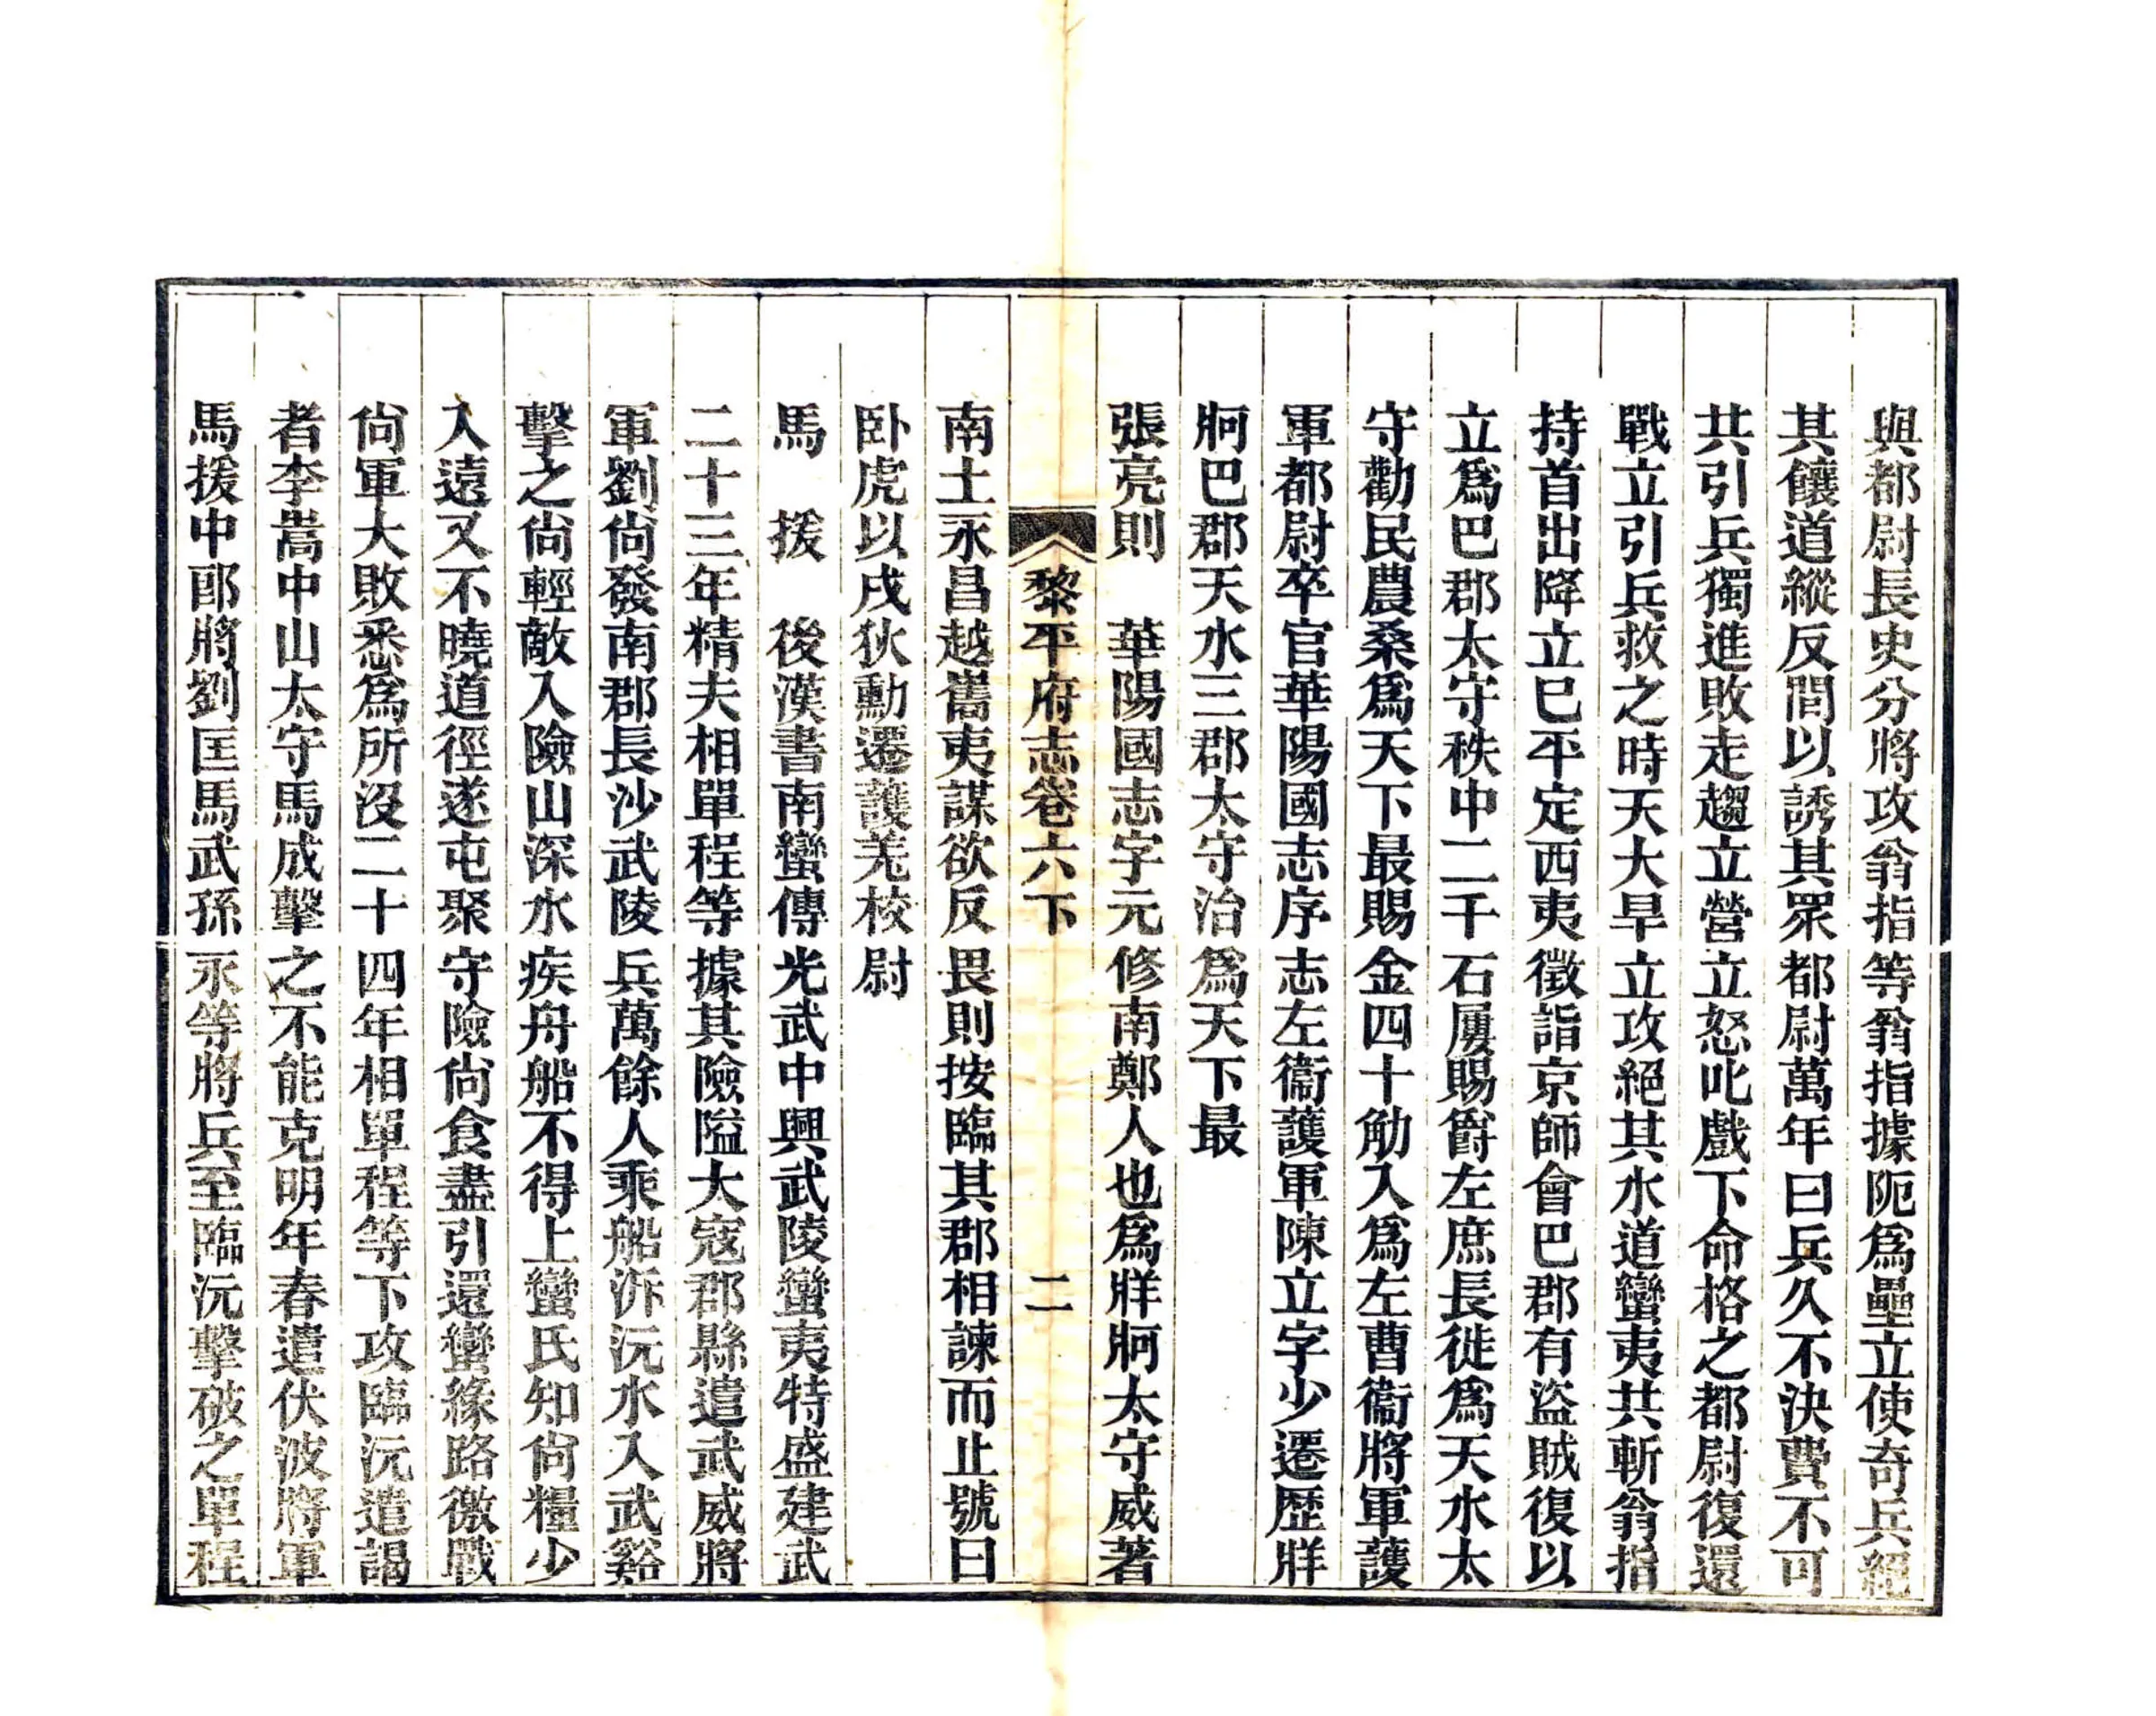 與都尉長史分將攻翁指等翁指據阨爲壘立使奇兵絕
其饟道縱反間以誘其眾都尉萬年曰兵久不決費不可
共引兵獨進敗走趨立營立怒叱戲下命格之都尉復還
戰立引兵救之時天大旱立攻絕其水道蠻夷共斬翁指
持首出降立巳平定西夷徵詣京師會巴郡有盜賊復以
立爲巴郡太守秩中二千石屢賜爵左庶長徙爲天水太
守勸民農桑爲天下最賜金四十觔入爲左曹衞將軍護
軍都尉卒官華陽國志序志左衞護軍陳立字少遷歷牂
牁巴郡天水三郡太守治爲天下最
張亮則　華陽國志字元修南鄭人也爲牂牁太守威著
黎平府志卷六下　二
南土永昌越嶲夷謀欲反畏則按臨其郡相諫而止號曰
卧虎以戌狄勳遷護羌校尉
馬　援　後漢書南蠻傳光武中興武陵蠻夷特盛建武
二十三年精夫相單程等據其險隘大寇郡縣遣武威將
軍劉尙發南郡長沙武陵兵萬餘人乘船泝沅水入武谿
擊之尙輕敵入險山深水疾舟船不得上蠻氏知尙糧少
入遠又不曉道徑遂屯聚守險尙食盡引還蠻緣路徼戰
尙軍大敗悉爲所沒二十四年相單程等下攻臨沅遣謁
者李嵩中山太守馬成擊之不能克明年春遣伏波將軍
馬援中郎將劉匡馬武孫永等將兵至臨沅擊破之單程